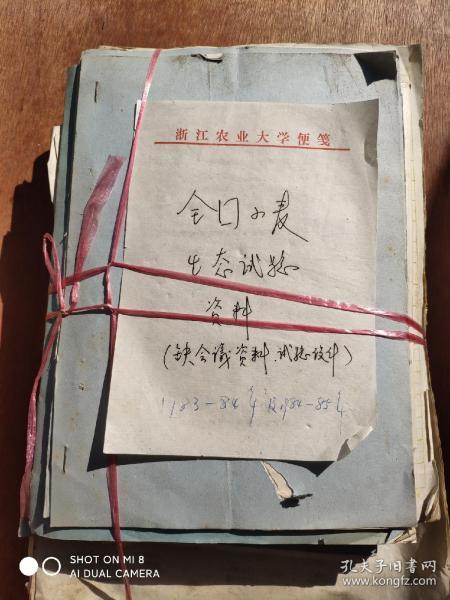 浙江农业大学便笺
全国小麦
生态试验
资料
(缺会议资料 试验设计)
1983-84年及1984-85年
SHOT ON MI 8
AI DUAL CAMERA
孔夫子旧书网
www.kongfz.com